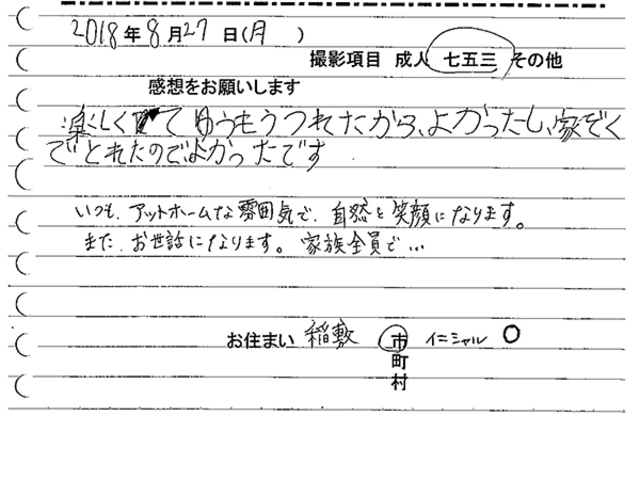 2018年8月27日(月)
撮影項目 成人 七五三 その他
感想をお願いします
楽しくて ゆうもうつれたから、よかったし、家ぞく
でとれたので、よかったです
いつも、アットホームな雰囲気で、自然と笑顔になります。
また、お世話になります。家族全員で…
お住まい 稲敷 市 イニシャル O
町
村